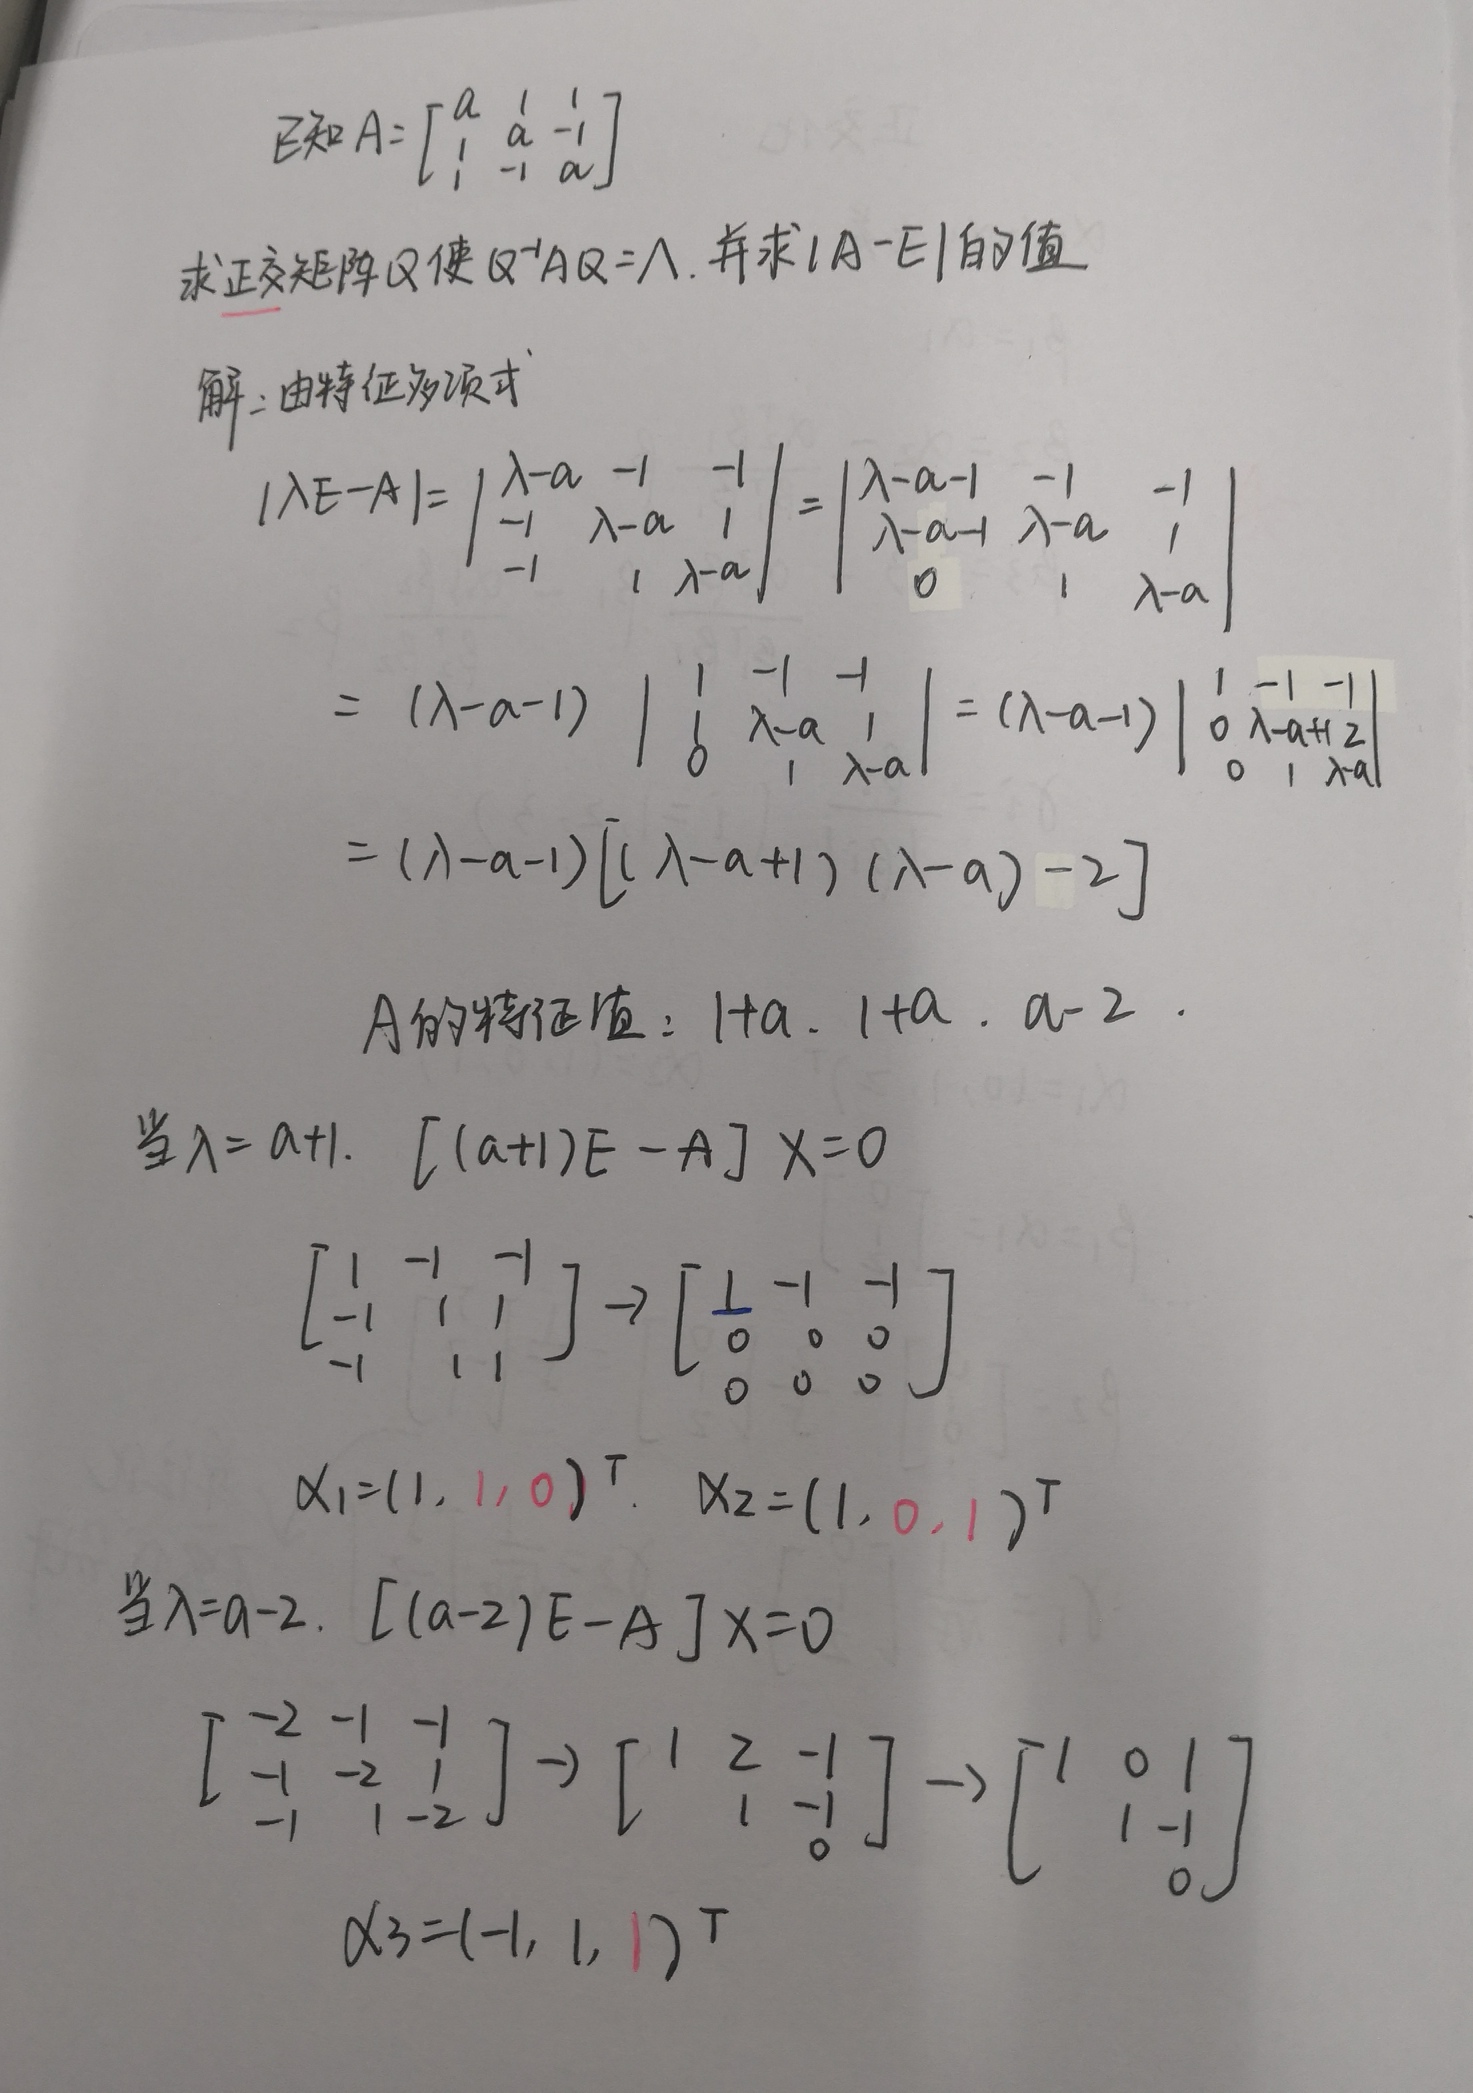 已知 A = [ a 1 1
1 a -1
1 -1 a ]
求正交矩阵Q使Q⁻¹AQ=Λ. 并求|A-E|的值
解: 由特征多项式
|λE-A| = | λ-a -1 -1 | = | λ-a-1 -1 -1 |
| -1 λ-a 1 | | λ-a-1 λ-a 1 |
| -1 1 λ-a | | 0 1 λ-a |
= (λ-a-1) | 1 -1 -1 | = (λ-a-1) | 1 -1 -1 |
| 1 λ-a 1 | | 0 λ-a+1 2 |
| 0 1 λ-a | | 0 1 λ-a |
= (λ-a-1)[(λ-a+1)(λ-a)-2]
A的特征值: 1+a. 1+a. a-2.
当λ=a+1. [(a+1)E-A]X=0
[ 1 -1 -1 ] → [ 1 -1 -1 ]
[ -1 1 1 ] [ 0 0 0 ]
[ -1 1 1 ] [ 0 0 0 ]
α1=(1, 1, 0)ᵀ. α2=(1, 0, 1)ᵀ
当λ=a-2. [(a-2)E-A]X=0
[ -2 -1 -1 ] → [ 1 2 -1 ] → [ 1 0 1 ]
[ -1 -2 1 ] [ 1 -1 ] [ 1 -1 ]
[ -1 1 -2 ] [ 0 ] [ 0 ]
α3=(-1, 1, 1)ᵀ